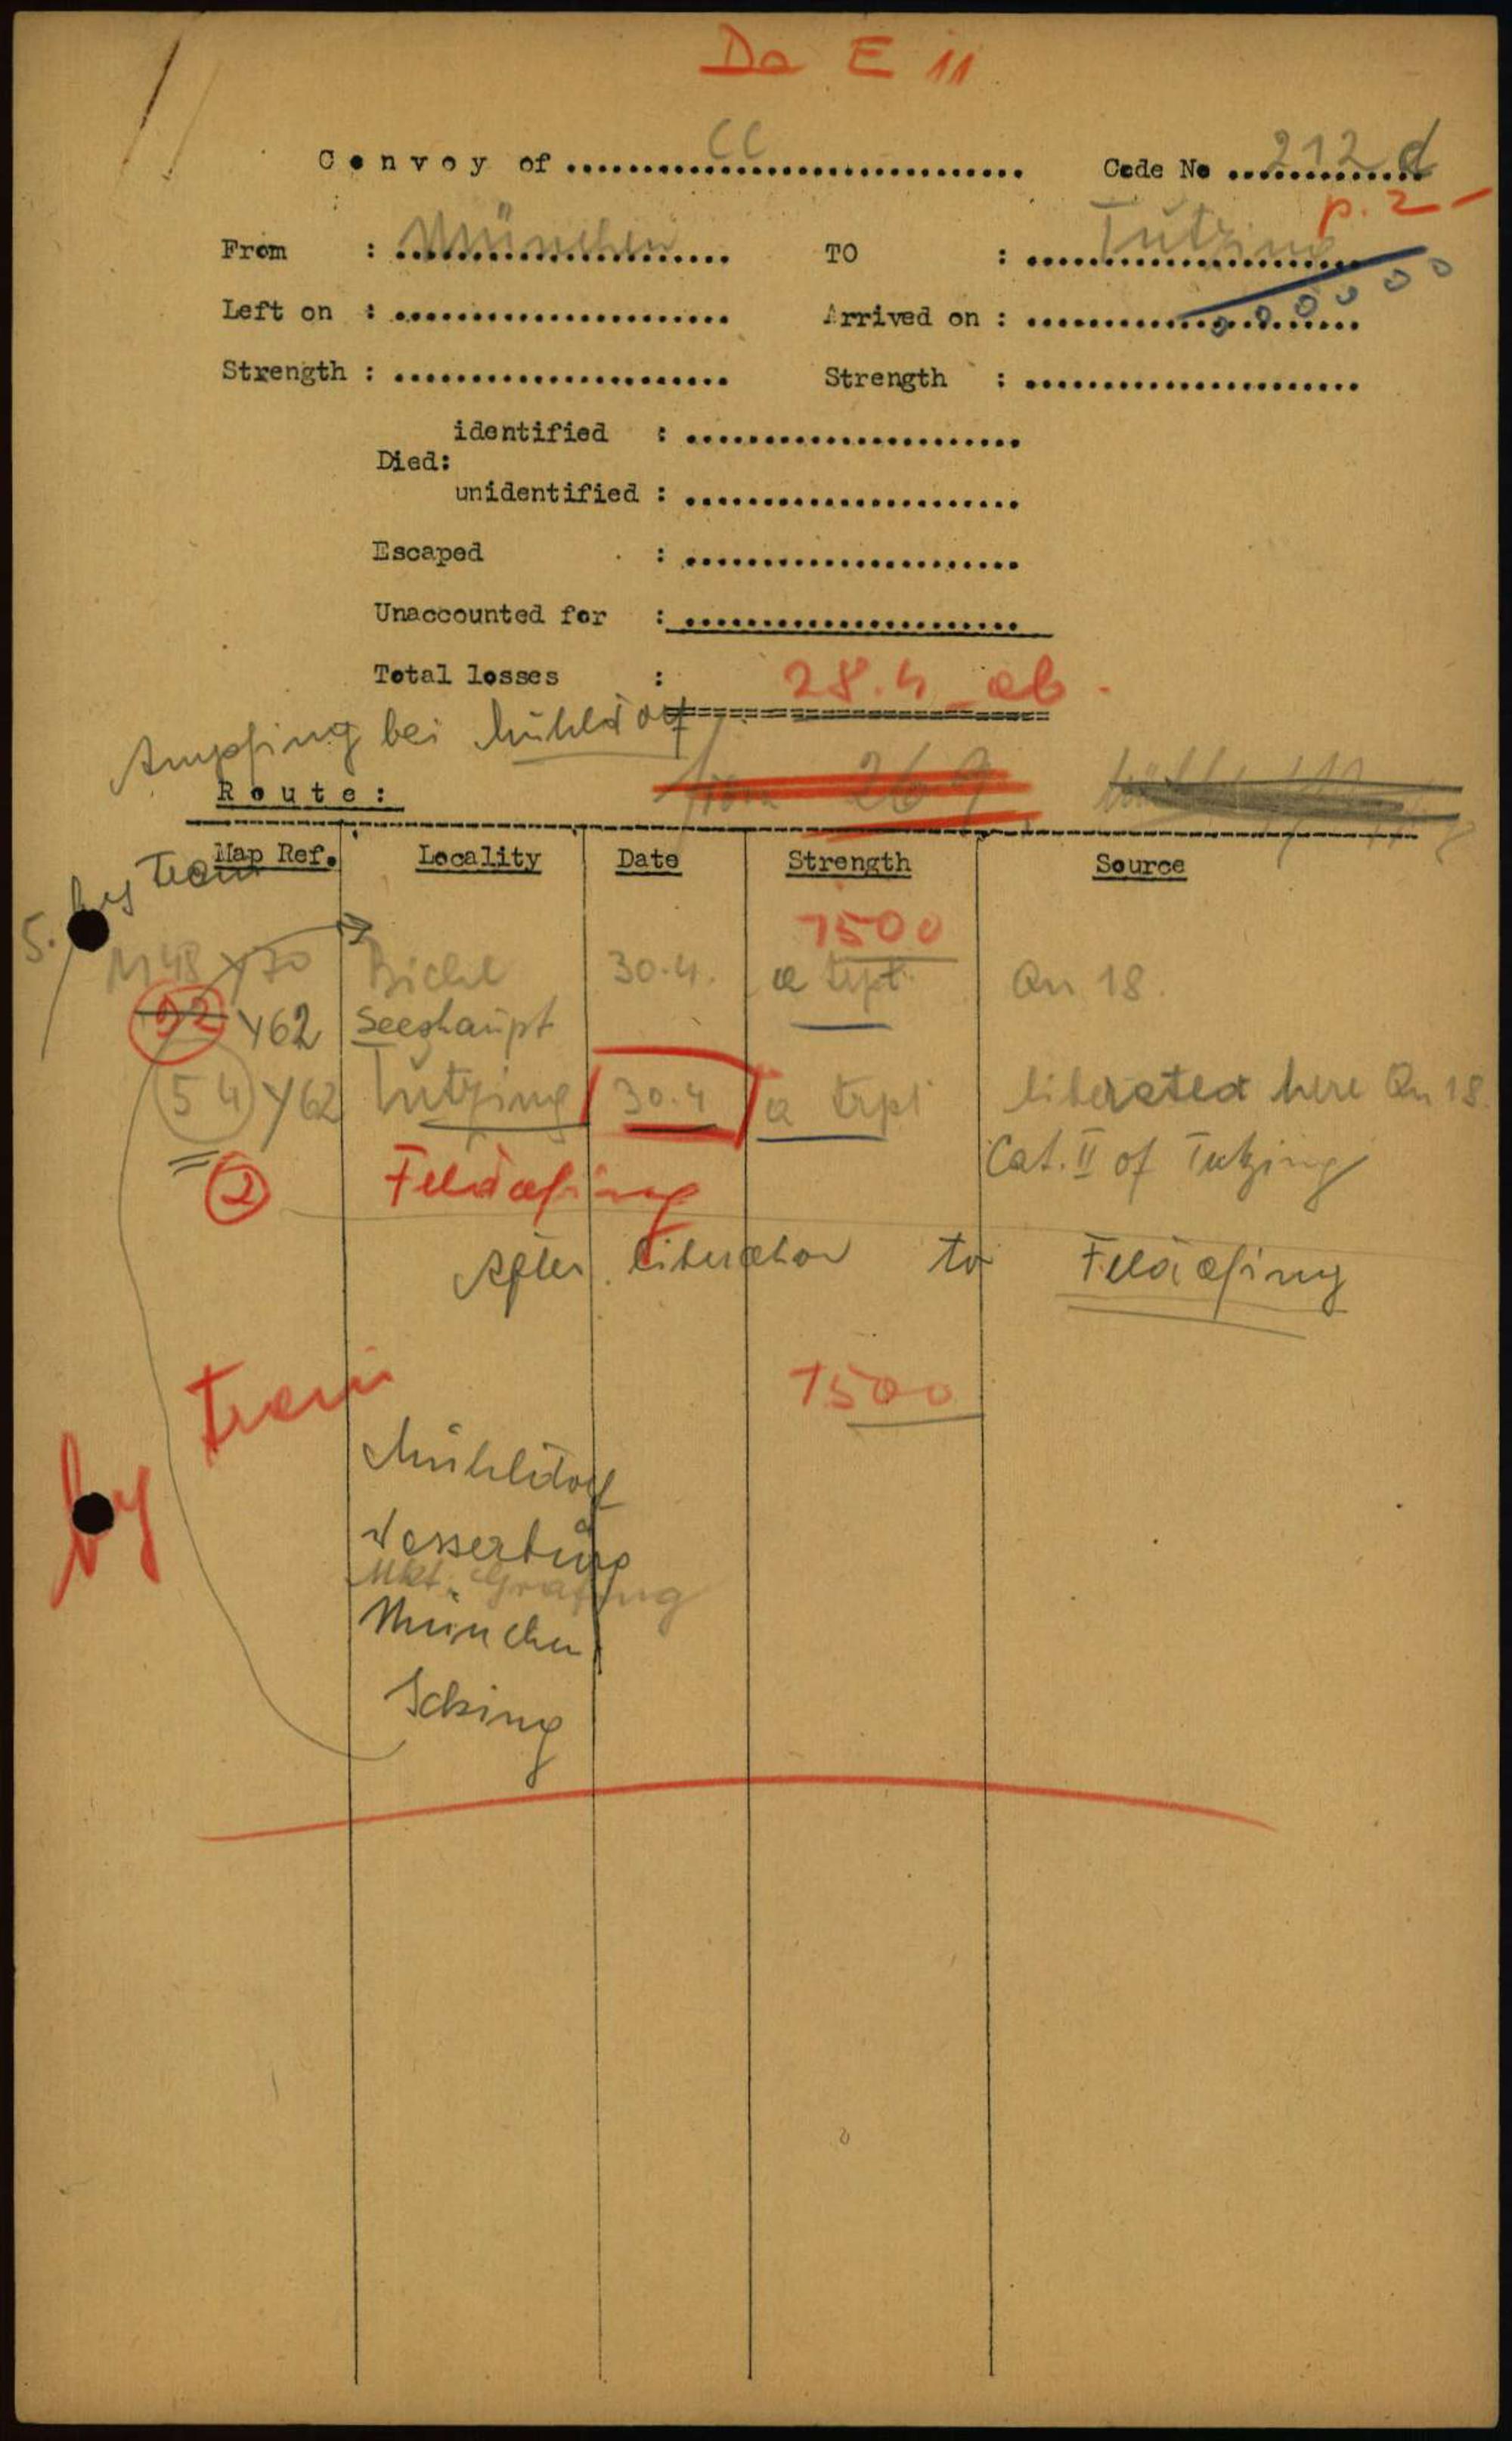 Da E 11
Convoy of .......... CC .......... Code No .......... 212 d
p. 2
From : München TO : Tutzing
Left on : .......... Arrived on : ..........
Strength : .......... Strength : ..........
identified : ..........
Died:
unidentified : ..........
Escaped : ..........
Unaccounted for : ..........
Total losses : 28.4 ab.
Ampfing bei Mühldorf
Route: from 269
Map Ref. Locality Date Strength Source
by train
1500
M48 Y70 Bichl 30.4. a tspt. Qu 18.
52 Y62 Seeshaupt
54 Y62 Tutzing 30.4 a tspt liberated here Qu 18.
Cat. II of Tutzing
2 Feldafing
After liberation to Feldafing
by train 1500
Mühldorf
Wasserburg
Mkt. Grafing
München
Icking